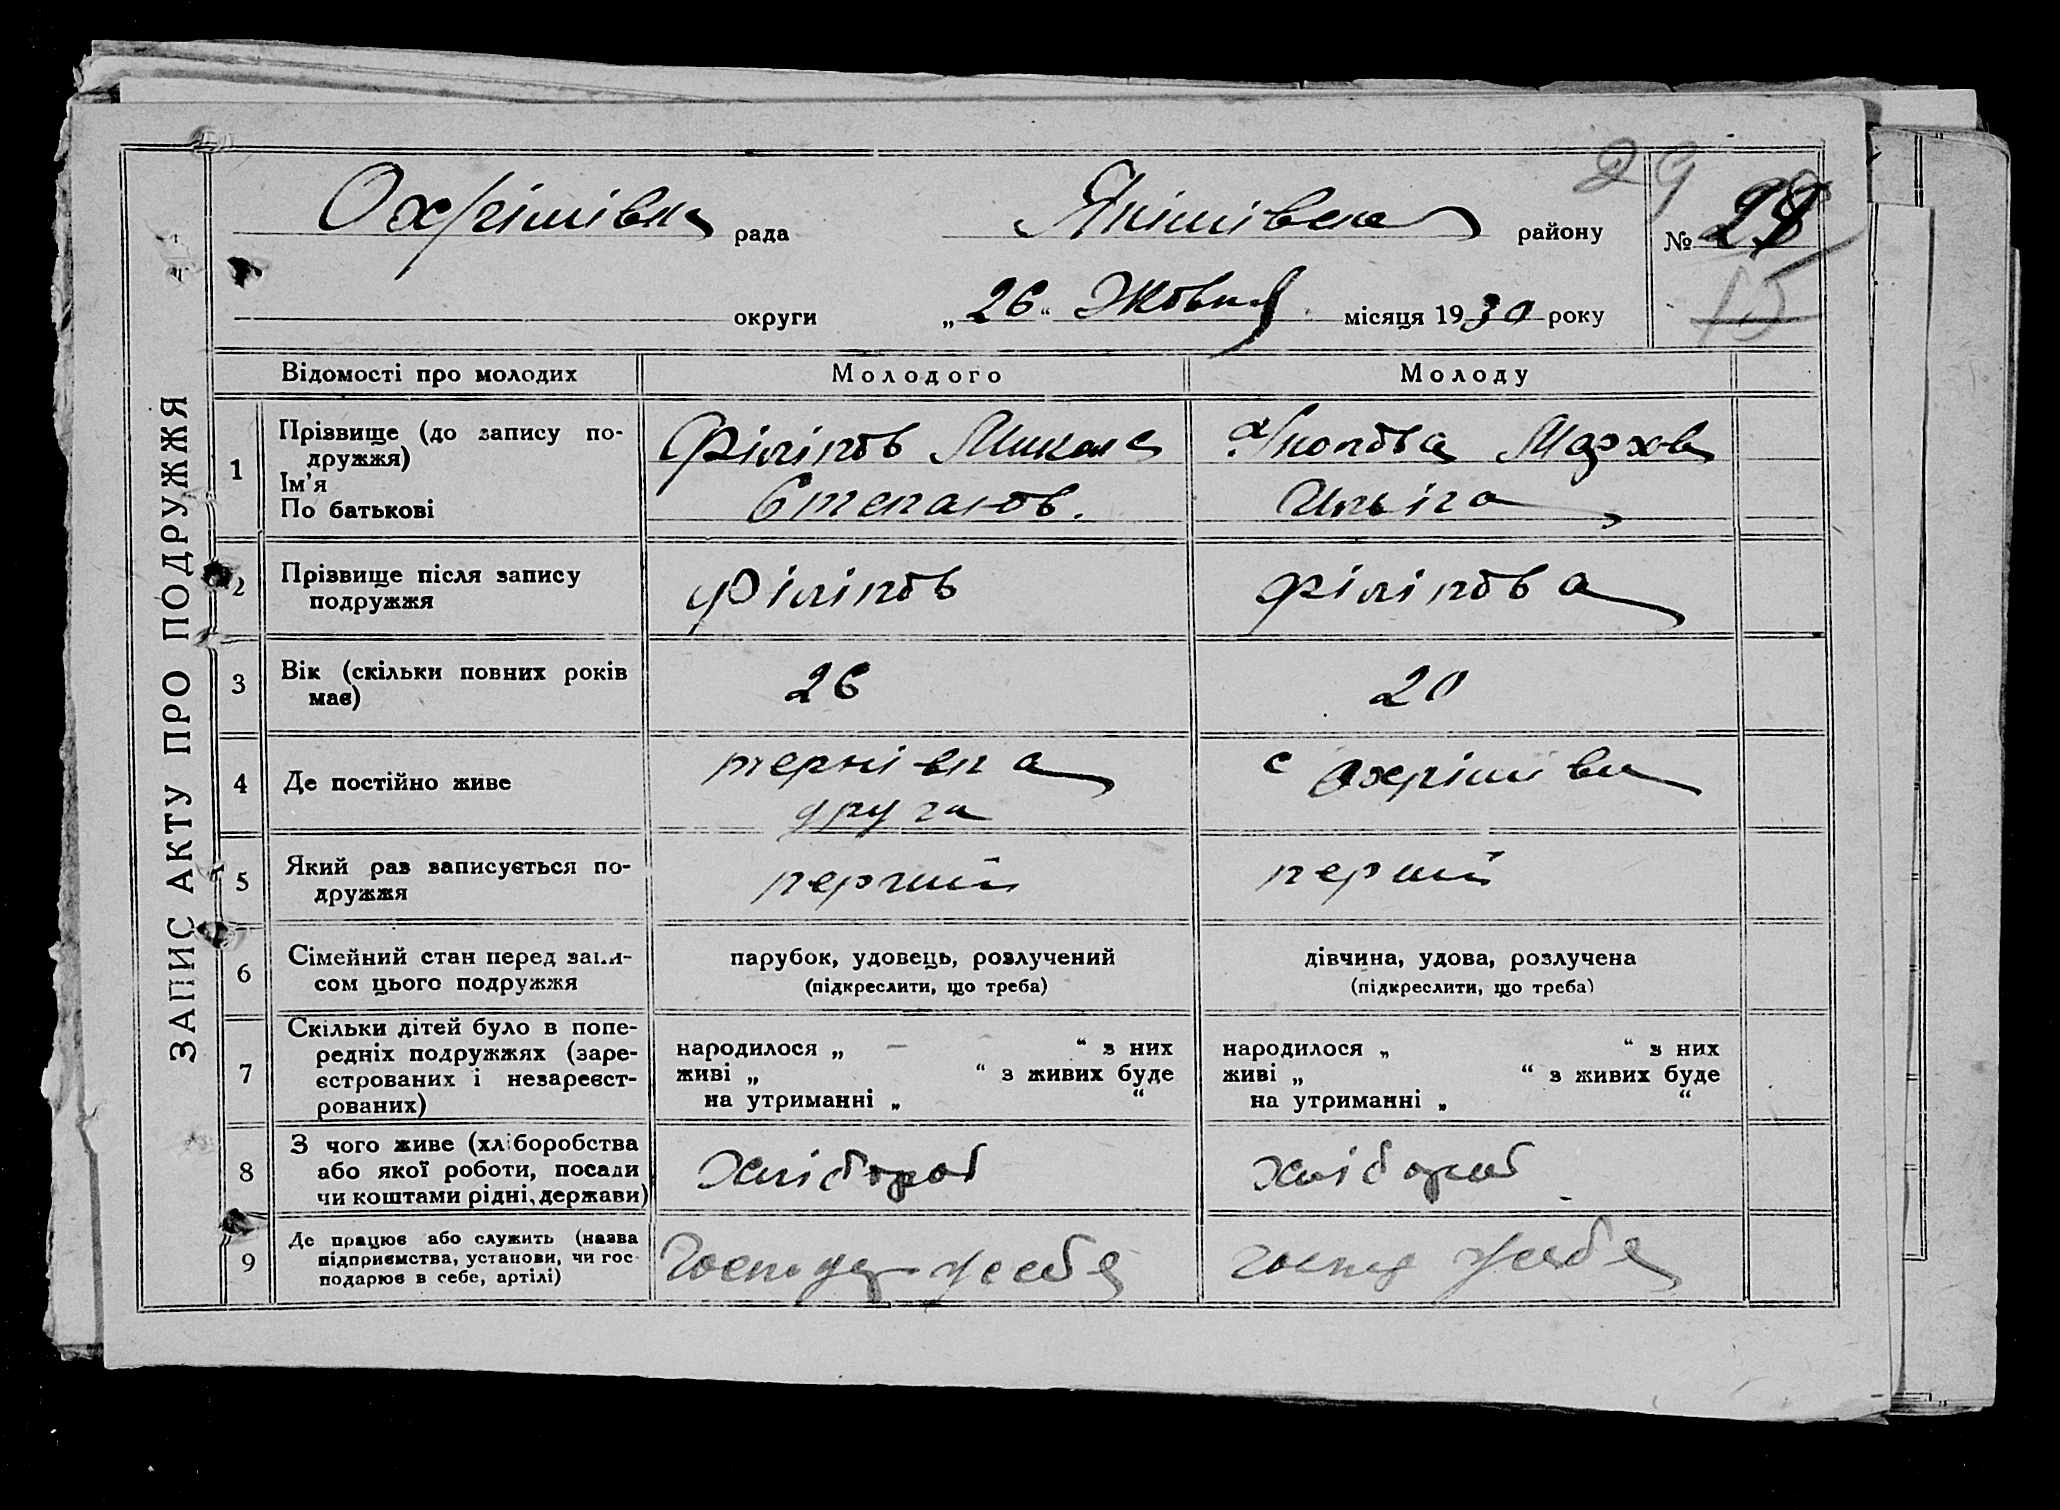 ЗАПИС АКТУ ПРО ПОДРУЖЖЯ
29
Охрімівка рада Якімівка району № 28
15
округи „26“ Жовтня місяця 1930 року
Відомості про молодих Молодого Молоду
1 Прізвище (до запису подружжя) Філіпов Микола Мархва
Ім'я
По батькові Степанов. Ильіна
2 Прізвище після запису подружжя Філіпов Філіпова
3 Вік (скільки повних років має) 26 20
4 Де постійно живе тернівка друга с Охрімівка
5 Який раз записується подружжя перший перший
6 Сімейний стан перед записом цього подружжя парубок, удовець, розлучений дівчина, удова, розлучена
(підкреслити, що треба) (підкреслити, що треба)
7 Скільки дітей було в попередніх подружжях (зареєстрованих і незареєстрованих)
народилося „ — “ з них народилося „ “ з них
живі „ “ з живих буде живі „ “ з живих буде
на утриманні „ “ на утриманні „ “
8 З чого живе (хліборобства або якої роботи, посади чи коштами рідні, держави) Хлібороб Хлібороб
9 Де працює або служить (назва підприємства, установи, чи господарює в себе, артілі) усебя усебя